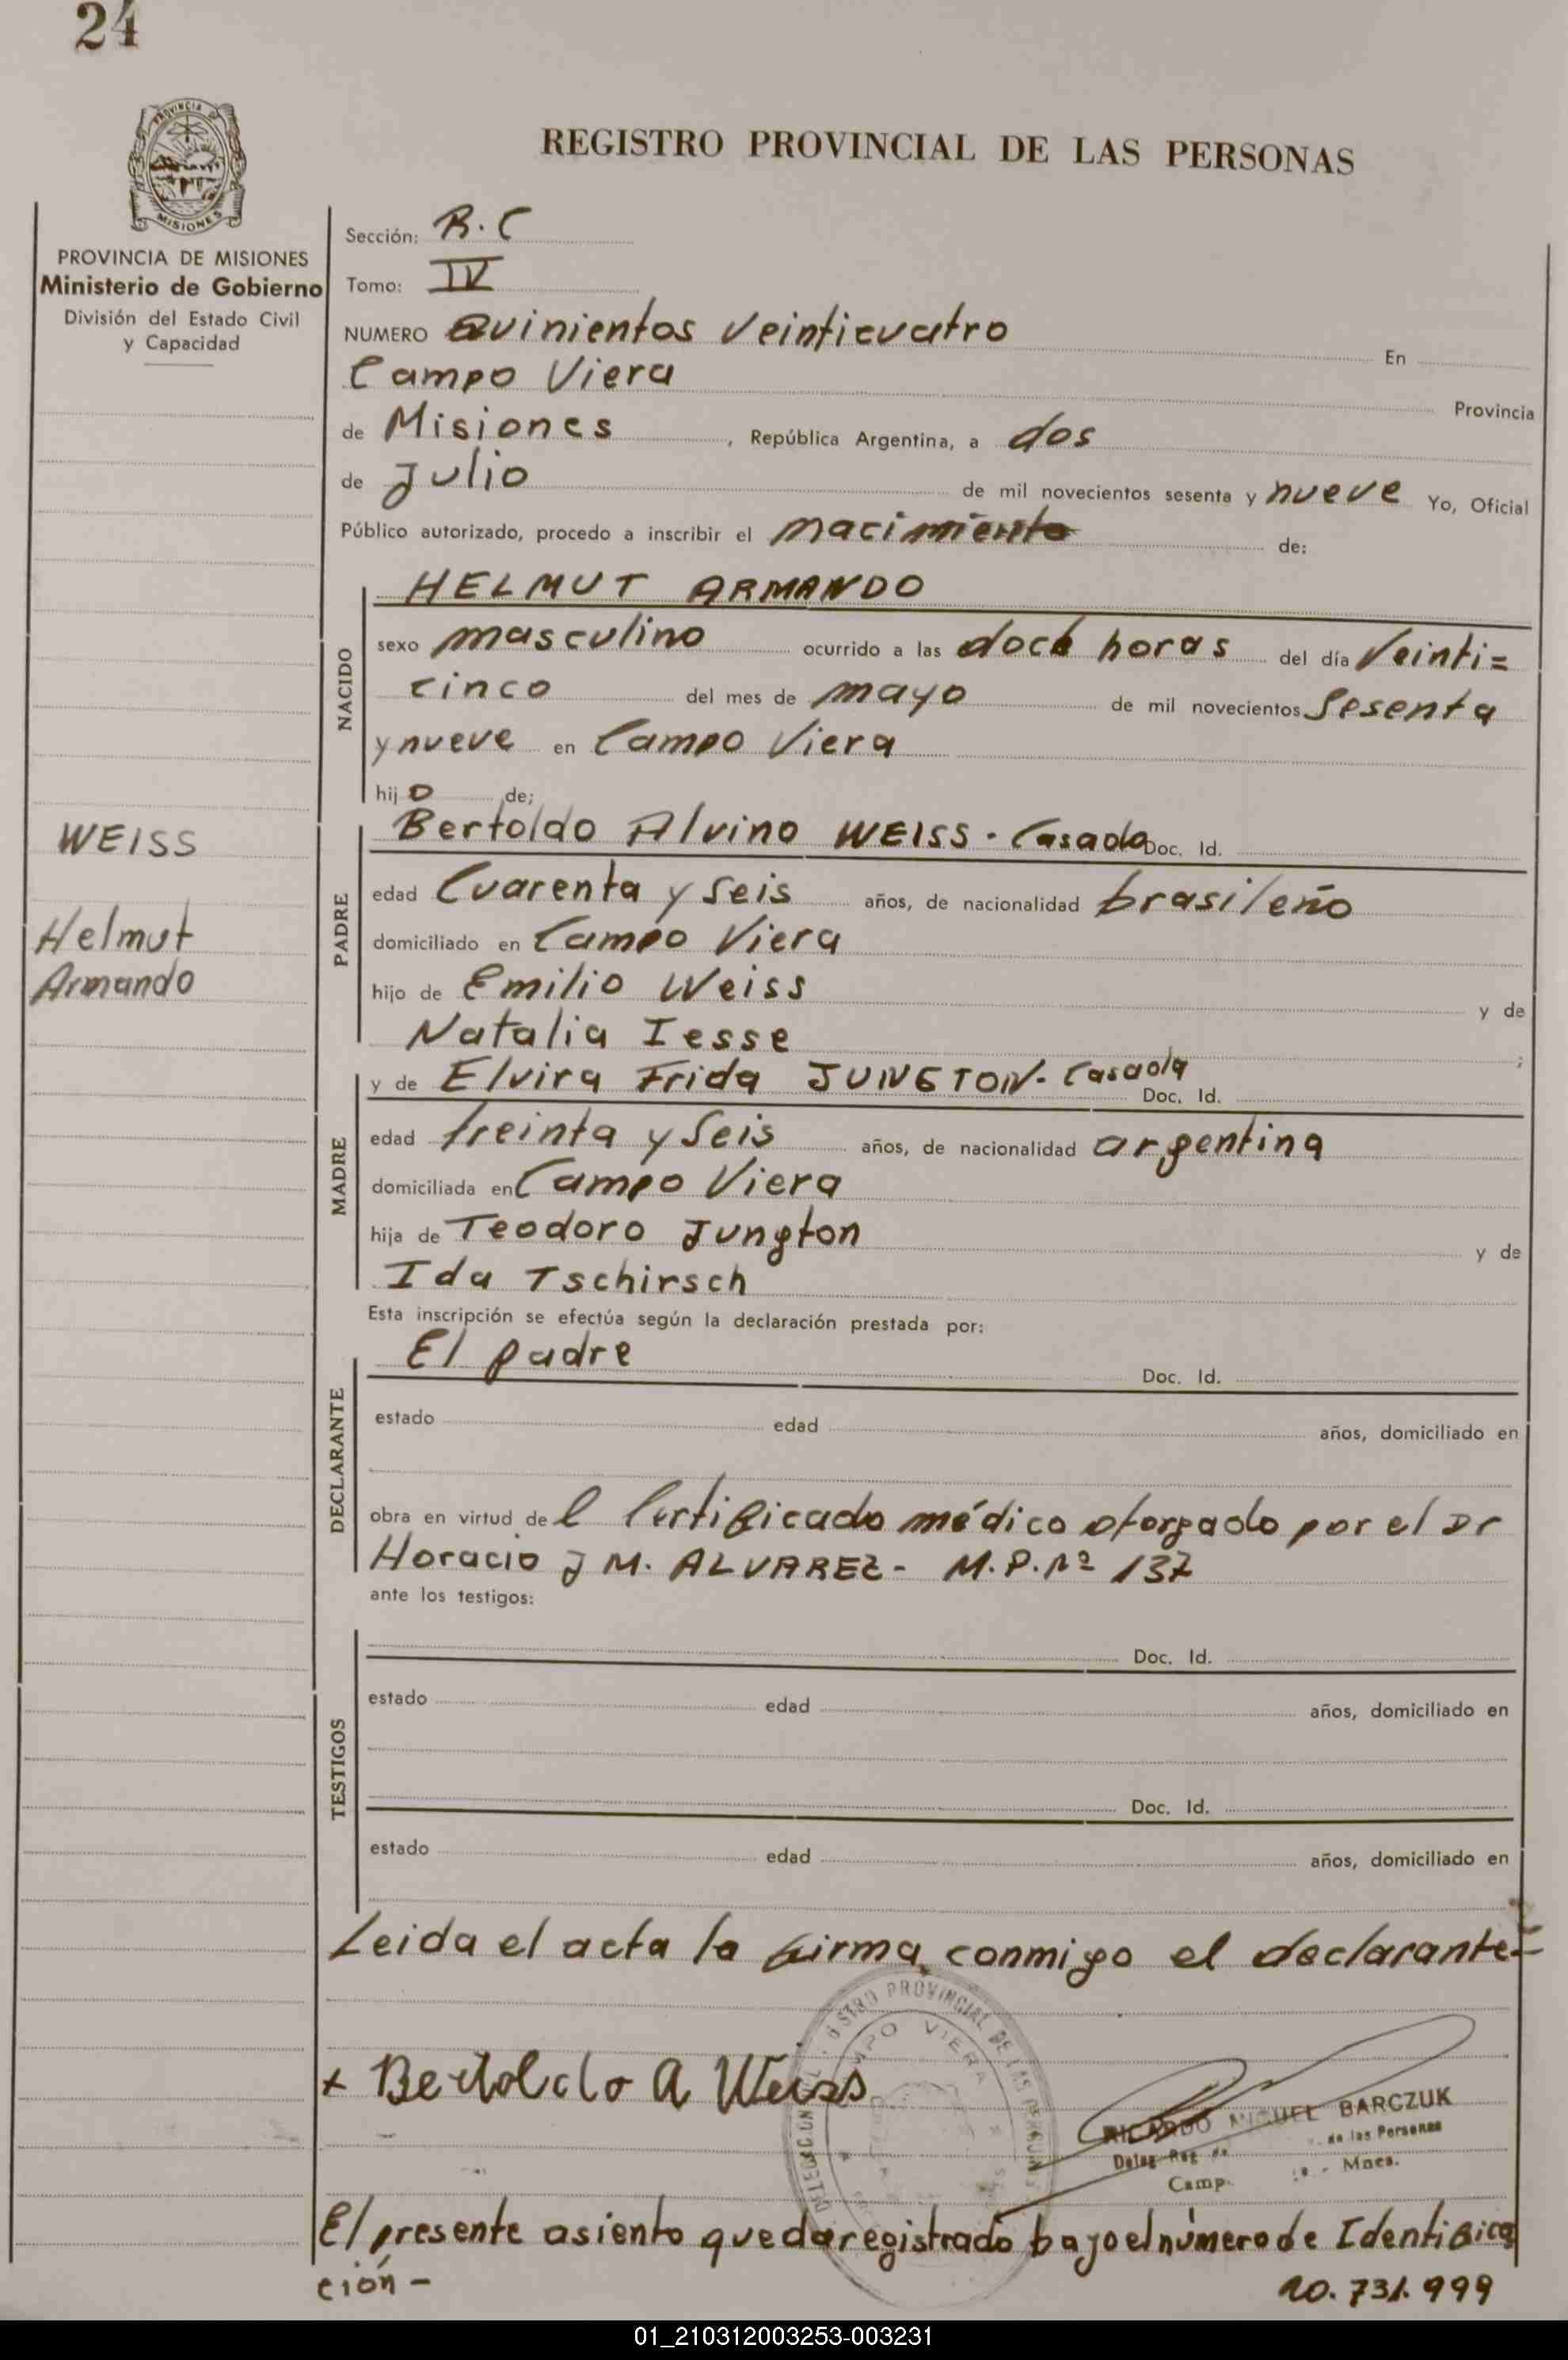 24
PROVINCIA DE MISIONES
REGISTRO PROVINCIAL DE LAS PERSONAS
PROVINCIA DE MISIONES
Ministerio de Gobierno
División del Estado Civil
y Capacidad
Sección: R.C
Tomo: IV
NUMERO Quinientos Veinticuatro En
Campo Viera Provincia
de Misiones, República Argentina, a dos
de Julio de mil novecientos sesenta y nueve Yo, Oficial
Público autorizado, procedo a inscribir el nacimiento de:
NACIDO
HELMUT ARMANDO
sexo masculino ocurrido a las doce horas del día Veinti=
cinco del mes de mayo de mil novecientos Sesenta
y nueve en Campo Viera
hijo de;
WEISS
Helmut
Armando
PADRE
Bertoldo Alvino WEISS - Casado Doc. Id.
edad Cuarenta y Seis años, de nacionalidad brasileño
domiciliado en Campo Viera
hijo de Emilio Weiss y de
Natalia Iesse ;
MADRE
y de Elvira Frida JUNGTON - Casada Doc. Id.
edad treinta y Seis años, de nacionalidad argentina
domiciliada en Campo Viera
hija de Teodoro Jungton y de
Ida Tschirsch
Esta inscripción se efectúa según la declaración prestada por:
DECLARANTE
El padre Doc. Id.
estado edad años, domiciliado en
obra en virtud del Certificado médico otorgado por el Dr
Horacio J M. ALVAREZ - M.P.Nº 137
ante los testigos:
TESTIGOS
Doc. Id.
estado edad años, domiciliado en
Doc. Id.
estado edad años, domiciliado en
Leida el acta la firma conmigo el declarante=
x Bertoldo A Weiss
CAMPO VIERA
RICARDO MIGUEL BARCZUK
Deleg. Reg. de las Personas
Camp. Mnes.
El presente asiento queda registrado bajo el número de Identifica
ción -
20.731.999
01_210312003253-003231